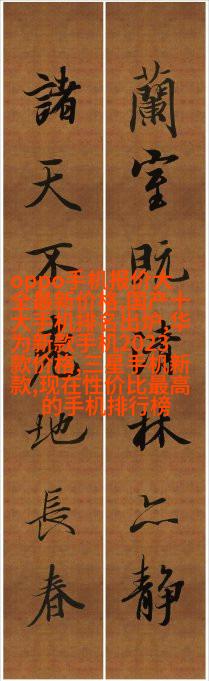 蘭室既林亦静
諸天不地長春
oppo手机报价大
全最新价格,国产十
大手机排名出炉,华
为新款手机2023
款价格,三星手机新
款,现在性价比最高
的手机排行榜